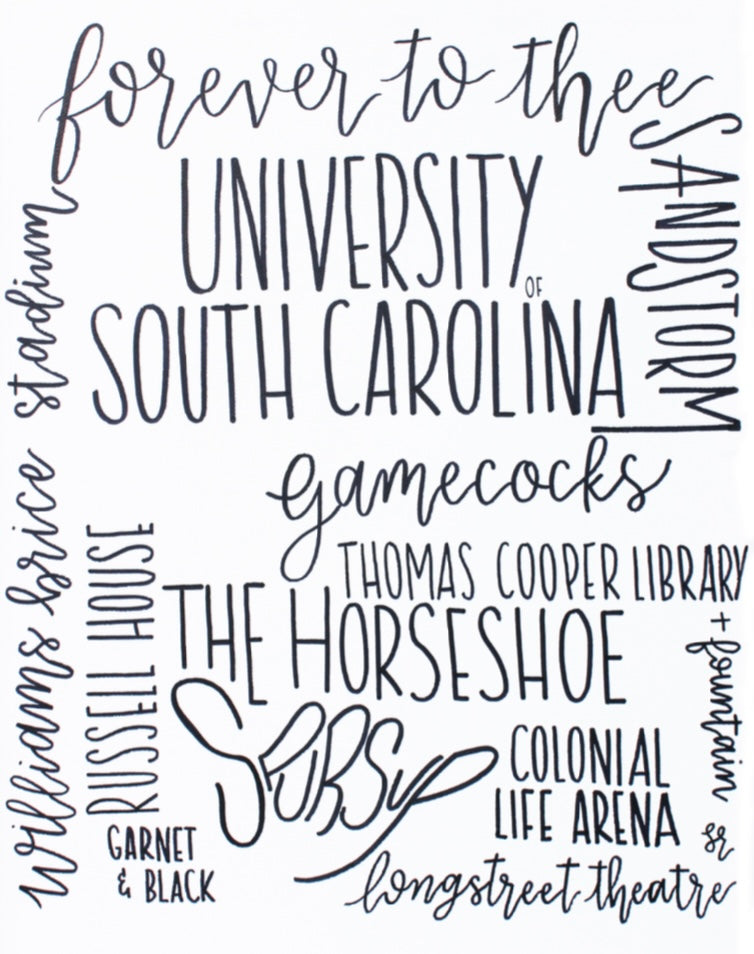 forever to thee
SANDSTORM
UNIVERSITY
OF
SOUTH CAROLINA
williams brice stadium
gamecocks
THOMAS COOPER LIBRARY
+ fountain
RUSSELL HOUSE
THE HORSESHOE
SPURS up
COLONIAL
LIFE ARENA
GARNET
& BLACK
longstreet theatre